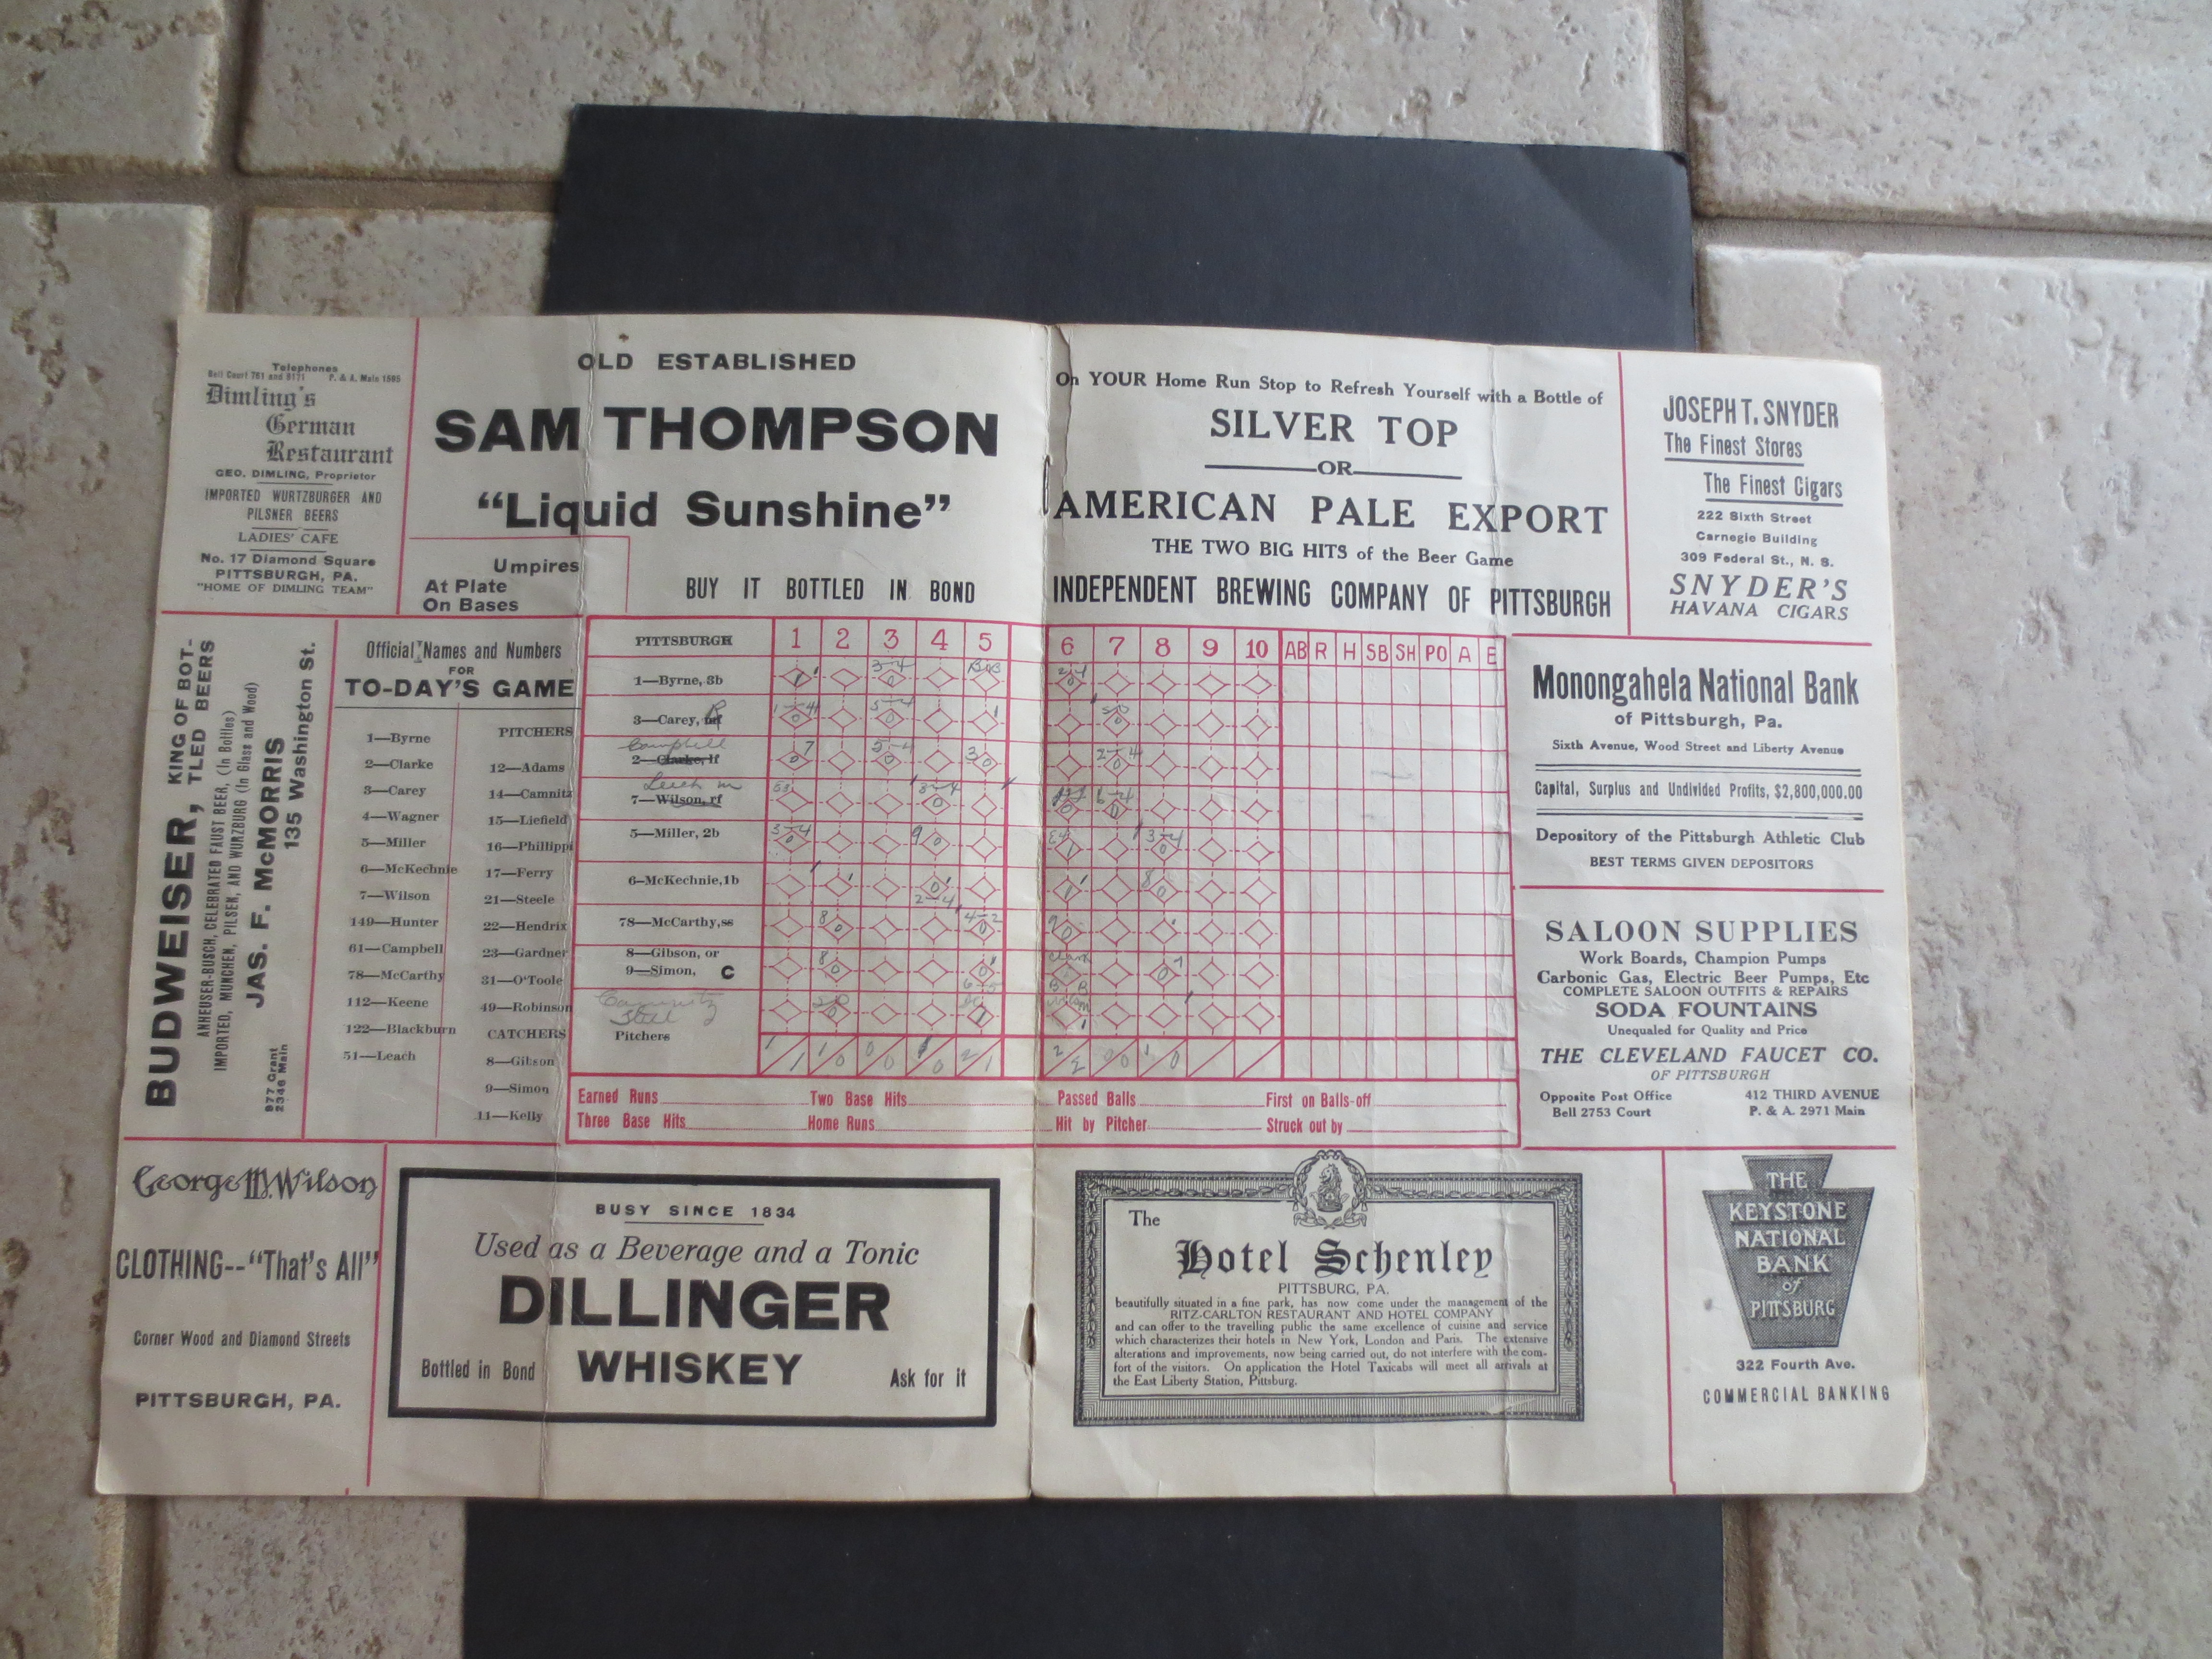 Telephones
Bell Court 761 and 9171 P. & A. Main 1595
Dimling's
German
Restaurant
GEO. DIMLING, Proprietor
IMPORTED WURTZBURGER AND
PILSNER BEERS
LADIES' CAFE
No. 17 Diamond Square
PITTSBURGH, PA.
"HOME OF DIMLING TEAM"
OLD ESTABLISHED
SAM THOMPSON
"Liquid Sunshine"
Umpires
At Plate
On Bases
BUY IT BOTTLED IN BOND
On YOUR Home Run Stop to Refresh Yourself with a Bottle of
SILVER TOP
OR
AMERICAN PALE EXPORT
THE TWO BIG HITS of the Beer Game
INDEPENDENT BREWING COMPANY OF PITTSBURGH
JOSEPH T. SNYDER
The Finest Stores
The Finest Cigars
222 Sixth Street
Carnegie Building
309 Federal St., N. S.
SNYDER'S
HAVANA CIGARS
BUDWEISER, KING OF BOT-
TLED BEERS
ANHEUSER-BUSCH, CELEBRATED FAUST BEER, (In Bottles)
IMPORTED, MUNCHEN, PILSEN, AND WURZBURG (In Glass and Wood)
JAS. F. McMORRIS
135 Washington St.
977 Grant
2346 Main
Official Names and Numbers
FOR
TO-DAY'S GAME
1—Byrne
2—Clarke
3—Carey
4—Wagner
5—Miller
6—McKechnie
7—Wilson
149—Hunter
61—Campbell
78—McCarthy
112—Keene
122—Blackburn
51—Leach
PITCHERS
12—Adams
14—Camnitz
15—Liefield
16—Phillippi
17—Ferry
21—Steele
22—Hendrix
23—Gardner
31—O'Toole
49—Robinson
CATCHERS
8—Gibson
9—Simon
11—Kelly
PITTSBURGH 1 2 3 4 5 6 7 8 9 10 AB R H SB SH PO A E
1—Byrne, 3b
3—Carey,
Campbell
2—Clarke, lf
Leach m
7—Wilson, rf
5—Miller, 2b
6—McKechnie, 1b
78—McCarthy, ss
8—Gibson, or
9—Simon, C
Camnitz
Pitchers
Earned Runs Two Base Hits Passed Balls First on Balls-off
Three Base Hits Home Runs Hit by Pitcher Struck out by
Monongahela National Bank
of Pittsburgh, Pa.
Sixth Avenue, Wood Street and Liberty Avenue
Capital, Surplus and Undivided Profits, $2,800,000.00
Depository of the Pittsburgh Athletic Club
BEST TERMS GIVEN DEPOSITORS
SALOON SUPPLIES
Work Boards, Champion Pumps
Carbonic Gas, Electric Beer Pumps, Etc
COMPLETE SALOON OUTFITS & REPAIRS
SODA FOUNTAINS
Unequaled for Quality and Price
THE CLEVELAND FAUCET CO.
OF PITTSBURGH
Opposite Post Office 412 THIRD AVENUE
Bell 2753 Court P. & A. 2971 Main
George W. Wilson
CLOTHING--"That's All"
Corner Wood and Diamond Streets
PITTSBURGH, PA.
BUSY SINCE 1834
Used as a Beverage and a Tonic
DILLINGER
Bottled in Bond WHISKEY Ask for it
The
Hotel Schenley
PITTSBURG, PA.
beautifully situated in a fine park, has now come under the management of the
RITZ-CARLTON RESTAURANT AND HOTEL COMPANY
and can offer to the travelling public the same excellence of cuisine and service
which characterizes their hotels in New York, London and Paris. The extensive
alterations and improvements, now being carried out, do not interfere with the com-
fort of the visitors. On application the Hotel Taxicabs will meet all arrivals at
the East Liberty Station, Pittsburg.
THE
KEYSTONE
NATIONAL
BANK
of
PITTSBURG
322 Fourth Ave.
COMMERCIAL BANKING